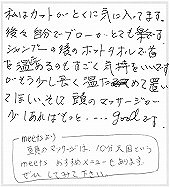 私はカットがとくに気に入ってます。
後々自分でブローがとても楽です。
シャンプーの後のホットタオルで首
を温めるのもすごく気持をいいです
がもう少し長く温だめて置いて
ほしい。そして頭のマッサージが
少しあればもっと・・・goodです。
meetsより
頭のマッサージは、10分天国という
meetsおすすめメニューもあります。
ぜひしてみて下さい。